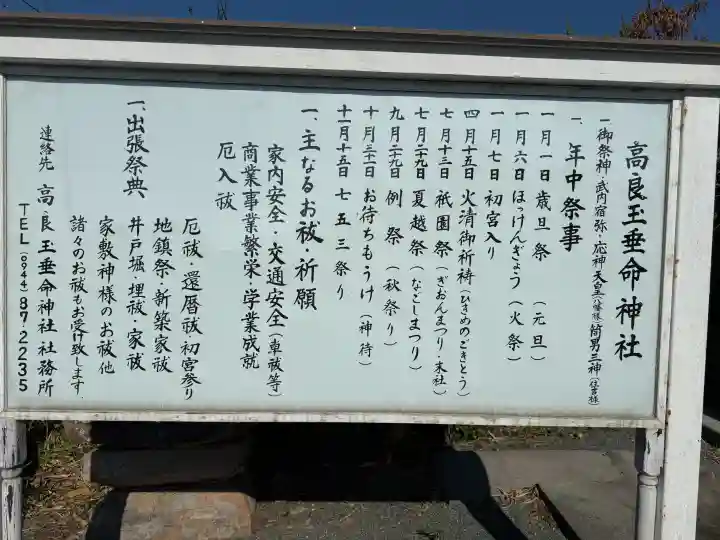 高良玉垂命神社
一、御祭神・武内宿弥・応神天皇(八幡様)筒男三神(住吉様)
一、年中祭事
一月一日歳旦祭(元旦)
一月六日ほっけんぎょう(火祭)
一月七日初宮入り
四月十五日火清御祈祷(ひきめのごきとう)
七月十三日祇園祭(ぎおんまつり・末社)
七月二十九日夏越祭(なごしまつり)
九月二十九日例祭(秋祭り)
十月三十一日お待ちもうけ(神待)
十一月十五日七五三祭り
一、主なるお祓・祈願
家内安全・交通安全(車祓等)
商業事業繁栄・学業成就
厄入祓
厄祓・還暦祓・初宮参り
一、出張祭典
地鎮祭・新築家祓
井戸堀・埋祓・家祓
家敷神様のお祓他
諸々のお祓もお受け致します.
連絡先 高良玉垂命神社社務所
TEL(0944)87-2235